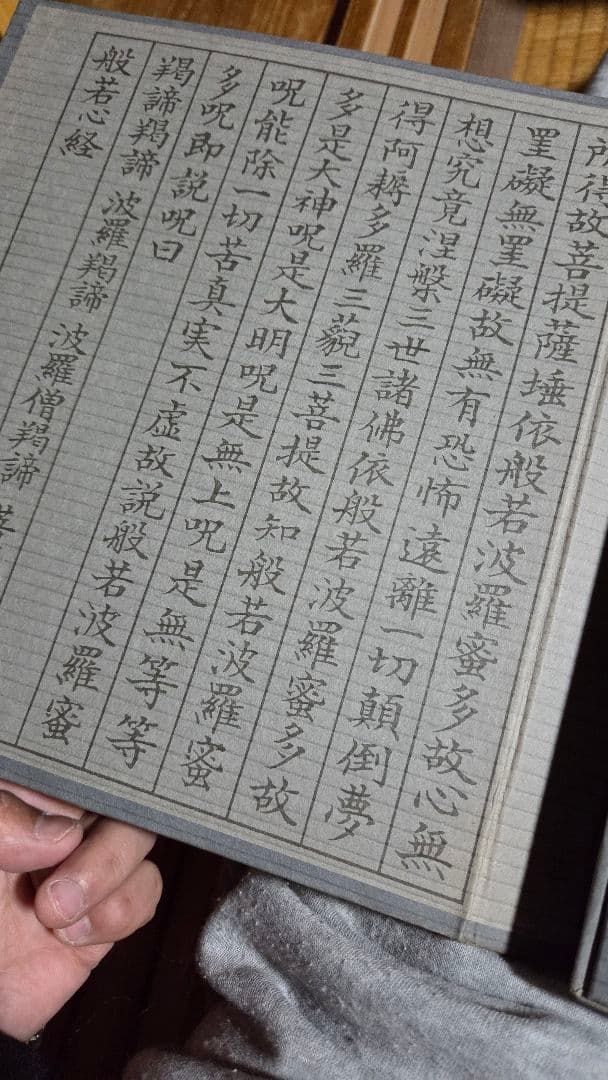 所得故菩提薩埵依般若波羅蜜多故心無
罣礙無罣礙故無有恐怖遠離一切顛倒夢
想究竟涅槃三世諸佛依般若波羅蜜多故
得阿耨多羅三藐三菩提故知般若波羅蜜
多是大神呪是大明呪是無上呪是無等等
呪能除一切苦真実不虚故説般若波羅蜜
多呪即説呪曰
羯諦羯諦 波羅羯諦 波羅僧羯諦
般若心経